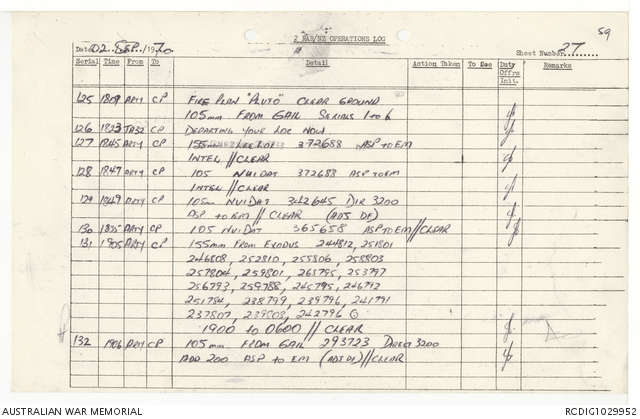 59
2 RAR/NZ OPERATIONS LOG
Date 02 SEP 1970
Sheet Number 27
Serial Time From To Detail Action Taken To Dec Duty Offrs Init. Remarks
125 1809 ARTY CP FIRE PLAN "PLUTO" CLEAR GROUND
105mm FROM GAIL SERIALS 1 to 6
126 1823 TA32 CP DEPARTING YOUR LOC NOW
127 1845 ARTY CP 155 372688 ASP to EM
INTEL // CLEAR
128 1847 ARTY CP 105 NUI DAT 372688 ASP to EM
INTEL // CLEAR
129 1849 ARTY CP 105mm NUI DAT 342645 DIR 3200
ASP to EM // CLEAR (ADJ DF)
130 1855 ARTY CP 105 NUI DAT 365658 ASP to EM // CLEAR
131 1905 ARTY CP 155mm FROM EXODUS 244812, 251801
246808, 252810, 255806, 258803
257804, 259801, 263795, 253797
256793, 259788, 245795, 246792
251784, 238799, 239796, 241791
237807, 239803, 242796 @
1900 to 0600 // CLEAR
132 1906 ARTY CP 105mm FROM GAIL 293723 DIRECT 3200
ADD 200 ASP to EM (ADJ DF) // CLEAR
AUSTRALIAN WAR MEMORIAL
RCDIG1029952